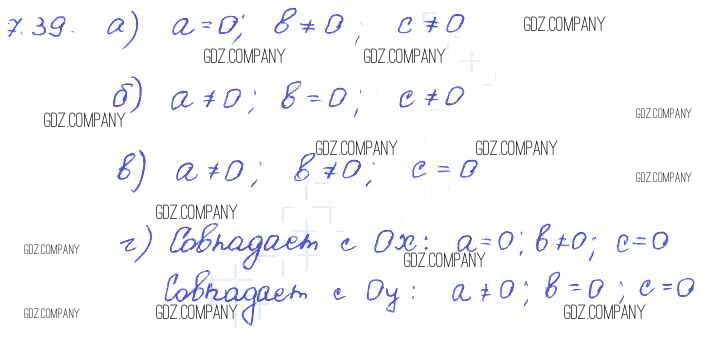 7.39. а) a = 0; b ≠ 0; c ≠ 0 GDZ.COMPANY
GDZ.COMPANY GDZ.COMPANY
б) a ≠ 0; b = 0; c ≠ 0
GDZ.COMPANY GDZ.COMPANY
GDZ.COMPANY GDZ.COMPANY
в) a ≠ 0; b ≠ 0; c = 0
GDZ.COMPANY
GDZ.COMPANY
г) Совпадает с Ox: a = 0; b ≠ 0; c = 0
GDZ.COMPANY GDZ.COMPANY
Совпадает с Oy: a ≠ 0; b = 0; c = 0
GDZ.COMPANY GDZ.COMPANY GDZ.COMPANY